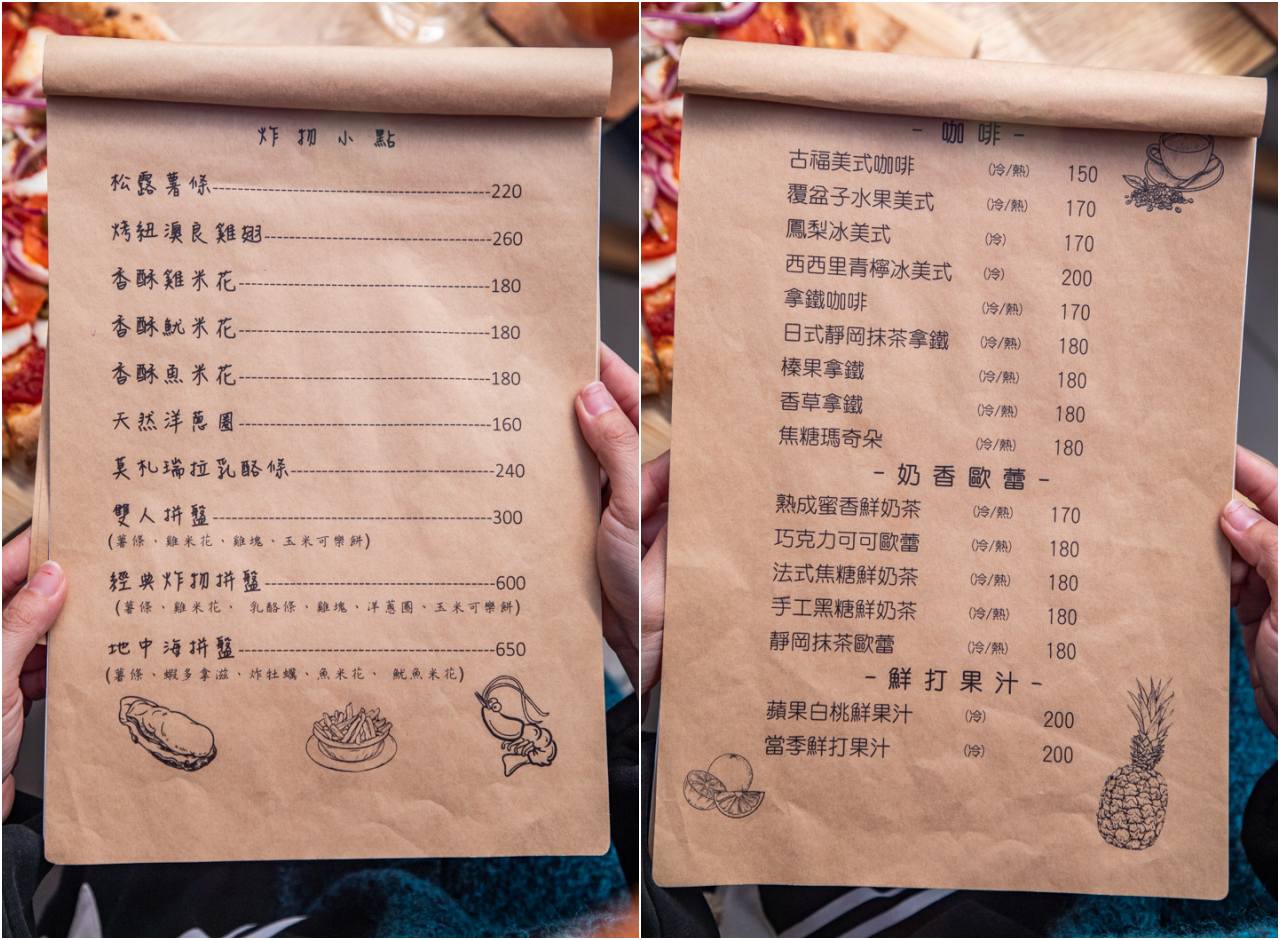 炸物小點
松露薯條----------220
烤紐澳良雞翅----------260
香酥雞米花----------180
香酥魷米花----------180
香酥魚米花----------180
天然洋蔥圈----------160
莫札瑞拉乳酪條----------240
雙人拼盤----------300
(薯條、雞米花、雞塊、玉米可樂餅)
經典炸物拼盤----------600
(薯條、雞米花、乳酪條、雞塊、洋蔥圈、玉米可樂餅)
地中海拼盤----------650
(薯條、蝦多拿滋、炸牡蠣、魚米花、魷魚米花)
-咖啡-
古福美式咖啡 (冷/熱) 150
覆盆子水果美式 (冷/熱) 170
鳳梨冰美式 (冷) 170
西西里青檸冰美式 (冷) 200
拿鐵咖啡 (冷/熱) 170
日式靜岡抹茶拿鐵 (冷/熱) 180
榛果拿鐵 (冷/熱) 180
香草拿鐵 (冷/熱) 180
焦糖瑪奇朵 (冷/熱) 180
-奶香歐蕾-
熟成蜜香鮮奶茶 (冷/熱) 170
巧克力可可歐蕾 (冷/熱) 180
法式焦糖鮮奶茶 (冷/熱) 180
手工黑糖鮮奶茶 (冷/熱) 180
靜岡抹茶歐蕾 (冷/熱) 180
-鮮打果汁-
蘋果白桃鮮果汁 (冷) 200
當季鮮打果汁 (冷) 200